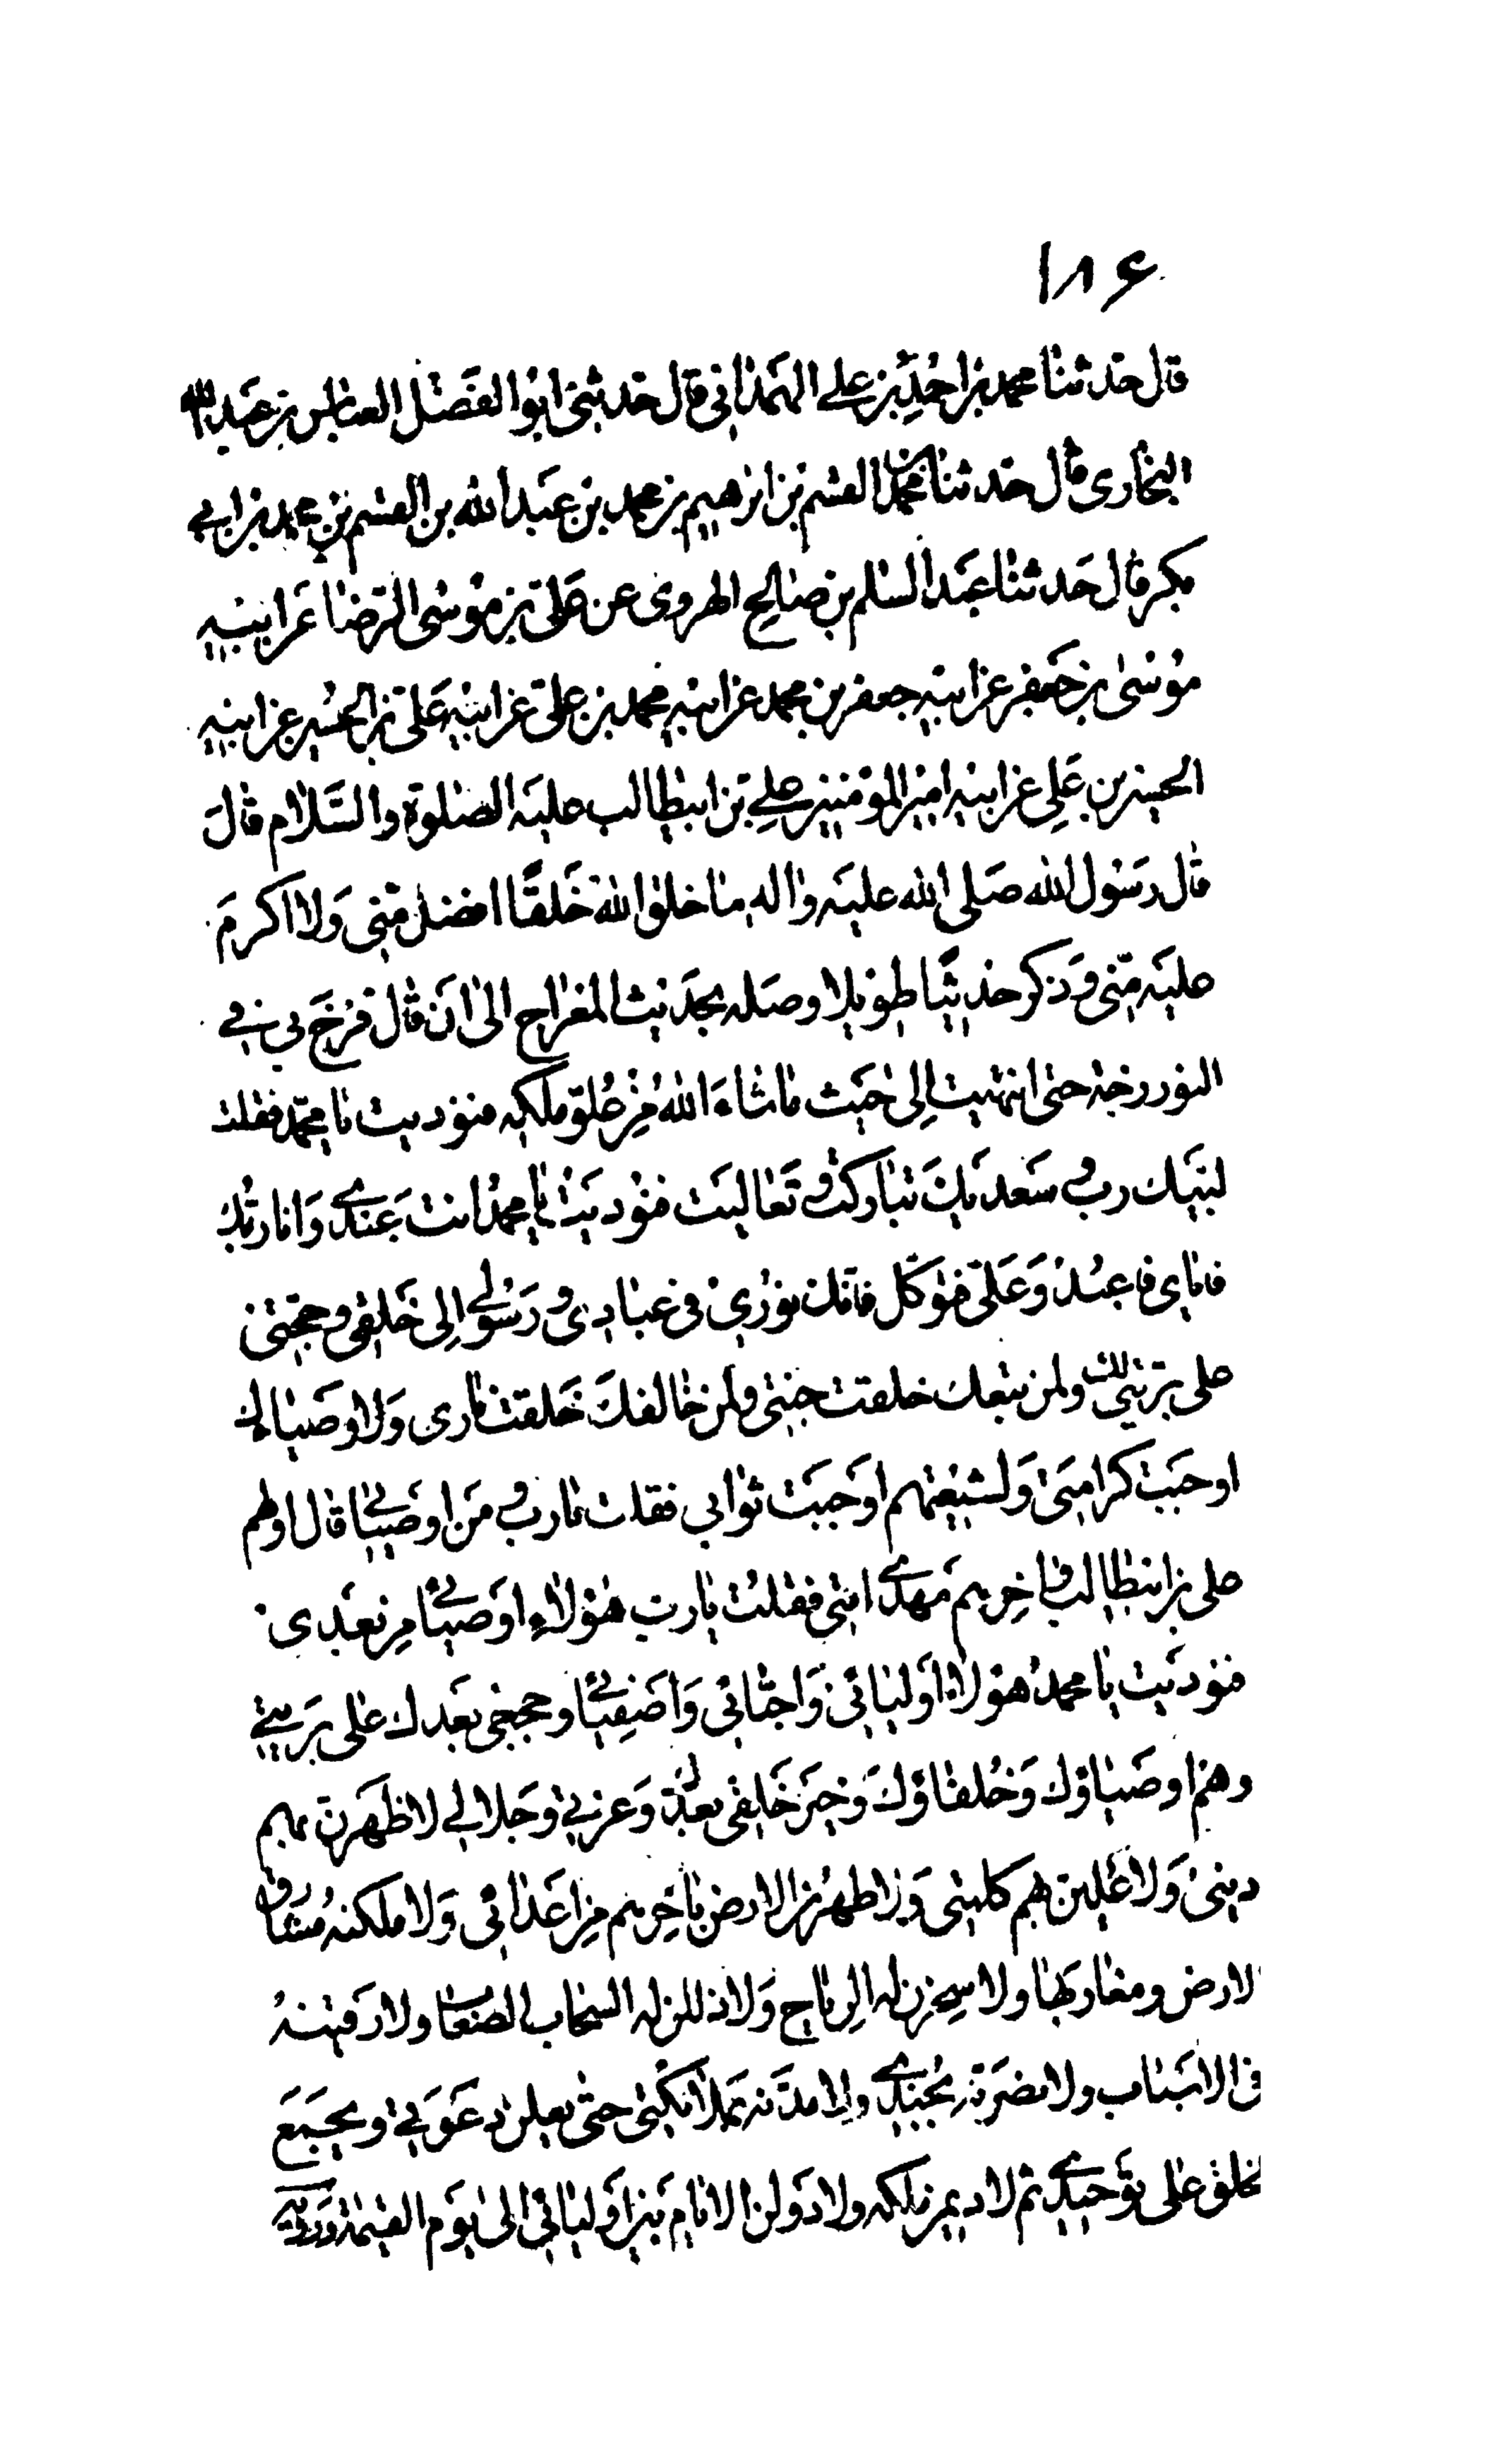 ۱۸۶
قال حدثنا محمد بن احمد بن علي الهمداني قال حدثني ابو الفضل العباس بن عبد الله
البخاري قال حدثنا محمد بن القسم بن ابرهيم بن محمد بن عبد الله بن القسم بن محمد بن ابي
بكر قال حدثنا عبد السلم بن صالح الهروي عن علي بن موسى الرضا عن ابيه
موسى بن جعفر عن ابيه جعفر بن محمد عن ابيه محمد بن علي عن ابيه علي بن الحسين عن ابيه
الحسين بن علي عن ابيه امير المؤمنين علي بن ابيطالب عليه الصلوة والسلام قال
قال رسول الله صلى الله عليه واله ما خلق الله خلقا افضل مني ولا اكرم
عليه مني وذكر حديثا طويلا وصله بحديث المعراج الى ان قال فزخ بي في
النور زخة حتى انتهيت الى حيث ما شاء الله من علو ملكه فنوديت يا محمد فقلت
لبيك رب وسعديك تباركت وتعاليت فنوديت يا محمد انت عبدي وانا ربك
فاياي فاعبد وعلي فتوكل فانك نوري في عبادي ورسولي الى خلقي وحجتي
على بريتي لك ولمن تبعك خلقت جنتي ولمن خالفك خلقت ناري ولاوصيائك
اوجبت كرامتي ولشيعتهم اوجبت ثوابي فقلت يا رب ومن اوصيائي قال اولهم
علي بن ابيطالب واخرهم مهدي امتي فقلت يا رب هؤلاء اوصيائي من بعدي
فنوديت يا محمد هؤلاء اوليائي واحبائي واصفيائي وحججي بعدك على بريتي
وهم اوصياؤك وخلفاؤك وخير خلقي بعدك وعزتي وجلالي لاظهرن بهم
ديني ولاعلين بهم كلمتي ولاطهرن الارض باخرهم من اعدائي ولاملكنه مشارق
لارض ومغاربها ولاسخرن له الرياح ولاذللن له السحاب الصعاب ولارقينه
في الاسباب ولانصرنه بجندي ولامدنه بملائكتي حتى يعلن دعوتي ويجمع
لخلق على توحيدي ثم لاديمن ملكه ولاداولن الايام بين اوليائي الى يوم القيمة